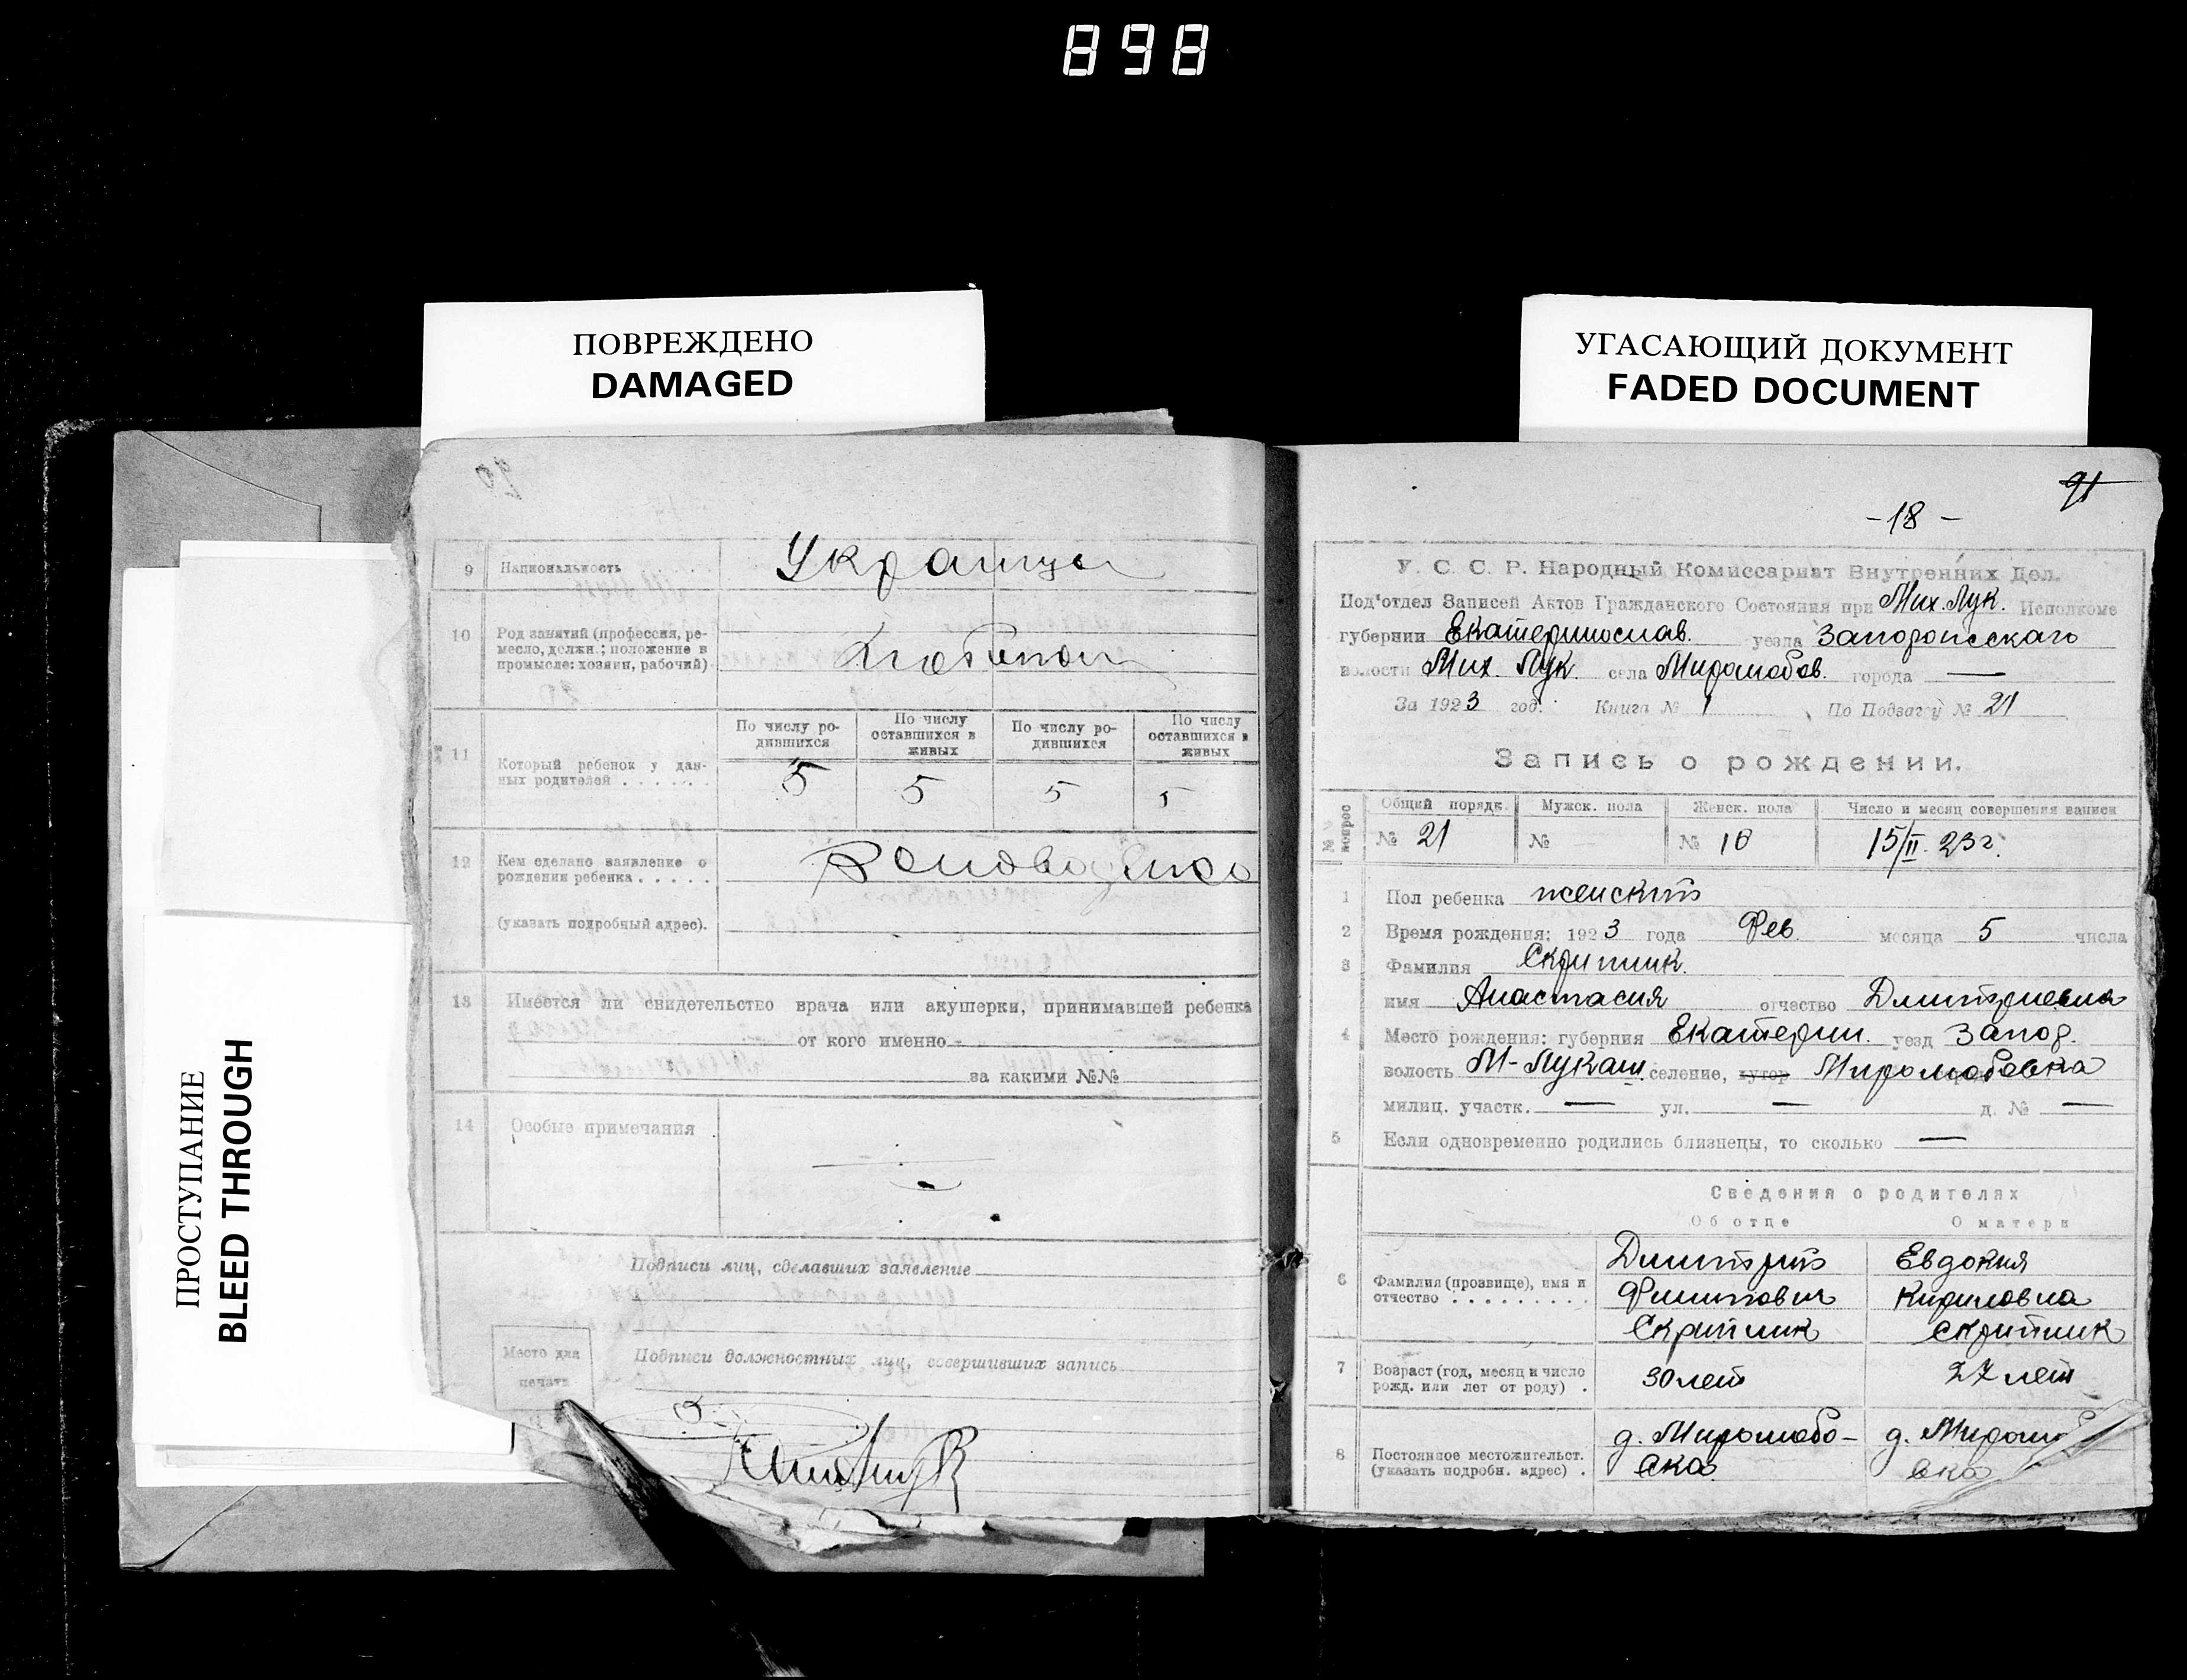 898
ПОВРЕЖДЕНО
DAMAGED
УГАСАЮЩИЙ ДОКУМЕНТ
FADED DOCUMENT
ПРОСТУПАНИЕ
BLEED THROUGH
9 Национальность Украинцы
10 Род занятий (профессия, ре-
месло, должн.; положение в
промысле: хозяин, рабочий)
По числу ро-
дившихся
По число
оставшихся в
живых
По числу ро-
дившихся
По число
оставшихся в
живых
11 Который ребенок у дан-
ных родителей . . . . . .
5 5 5 5
12 Кем сделано заявление о
рождении ребенка . . . . .
(указать подробный адрес).
13 Имеется ли свидетельство врача или акушерки, принимавшей ребенка
от кого именно
за какими №№
14 Особые примечания
Подписи лиц, сделавших заявление
Место для
печати
Подписи должностных лиц, совершивших запись
91
-18-
У. С. С. Р. Народный Комиссариат Внутренних Дел.
Под'отдел Записей Актов Гражданского Состояния при Мих. Лук. Исполкоме
губернии Екатеринослав. уезда Запорожскаго
волости Мих. Лук. села Миролюбов. города —
За 1923 год. Книга № 1 По Подзагсу № 21
Запись о рождении.
№№ вопрос
Общий порядк. Мужск. пола Женск. пола Число и месяц совершения записи
№ 21 № № 10 15/II 23 г.
1 Пол ребенка женский
2 Время рождения: 1923 года Фев. месяца 5 числа
3 Фамилия Скрипник.
имя Анастасия отчество Дмитриевна
4 Место рождения: губерния Екатерин. уезд Запор.
волость М-Лукаш. селение, хутор Миролюбовка
милиц. участк. — ул. — д. № —
5 Если одновременно родились близнецы, то сколько —
Сведения о родителях
Об отце О матери
6 Фамилия (прозвище), имя и
отчество . . . . . . . . .
Дмитрий
Филипович
Скрипник
Евдокия
Кириловна
Скрипник
7 Возраст (год, месяц и число
рожд. или лет от роду) .
30 лет 27 лет
8 Постоянное местожительст.
(указать подробн. адрес) .
д. Миролюбо-
вка
д. Миролю
вка